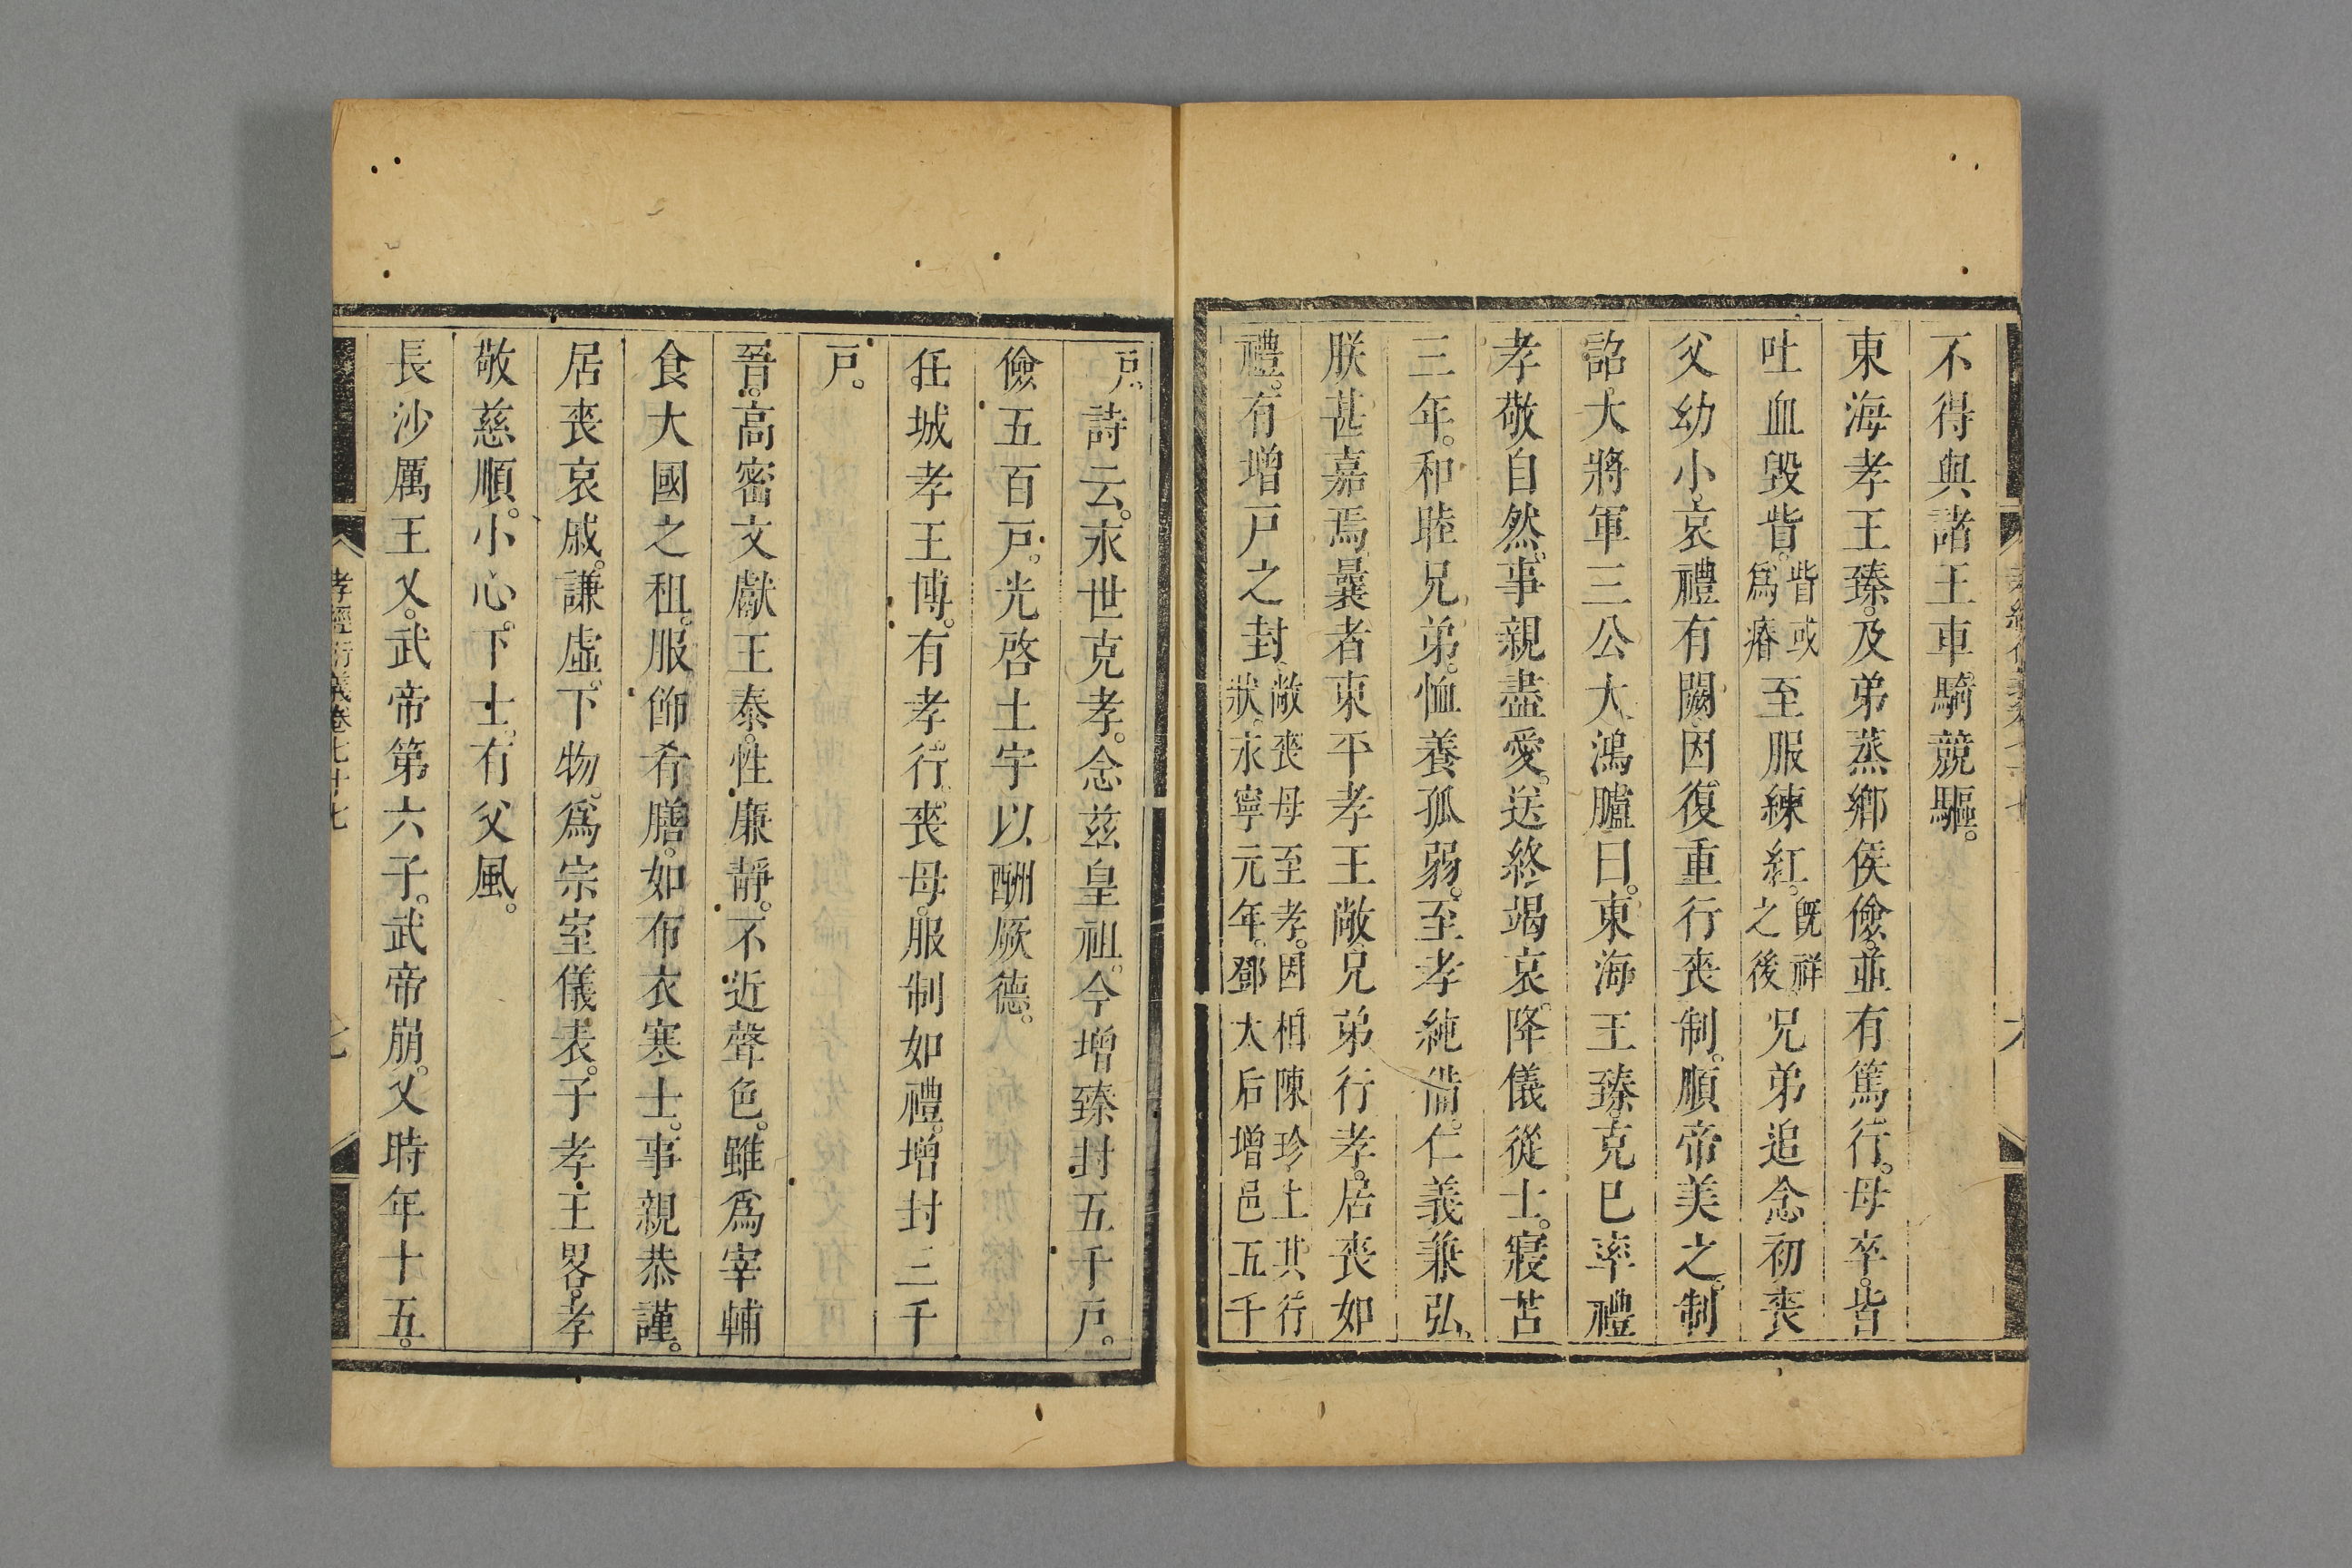 不得與諸王車騎競驅。
東海孝王臻。及弟蒸鄉侯儉。並有篤行。母卒。皆
吐血毀眥。眥或爲瘠至服練紅。旣祥之後兄弟追念初喪
父幼小。哀禮有闕。因復重行喪制。順帝美之。制
詔。大將軍三公大鴻臚曰。東海王臻。克巳率禮
孝敬自然。事親盡愛。送終竭哀。降儀從士。寢苫
三年。和睦兄弟。恤養孤弱。至孝純備。仁義兼弘。
朕甚嘉焉。曩者東平孝王敞。兄弟行孝。居喪如
禮。有增戸之封。敞喪母至孝。因相陳珍上其行狀。永寧元年。鄧太后增邑五千
戸。詩云。永世克孝。念兹皇祖。今增臻封五千戸。
儉五百戸。光啓土宇以酬厥德。
任城孝王博。有孝行。喪母。服制如禮。增封三千
戸。
晉。高密文獻王泰。性廉靜。不近聲色。雖爲宰輔
食大國之租。服飾肴膳。如布衣寒士。事親恭謹。
居喪哀戚。謙虛下物。爲宗室儀表。子孝王畧。孝
敬慈順。小心下士。有父風。
長沙厲王乂。武帝第六子。武帝崩。乂時年十五。
孝經衍義卷七十七
七